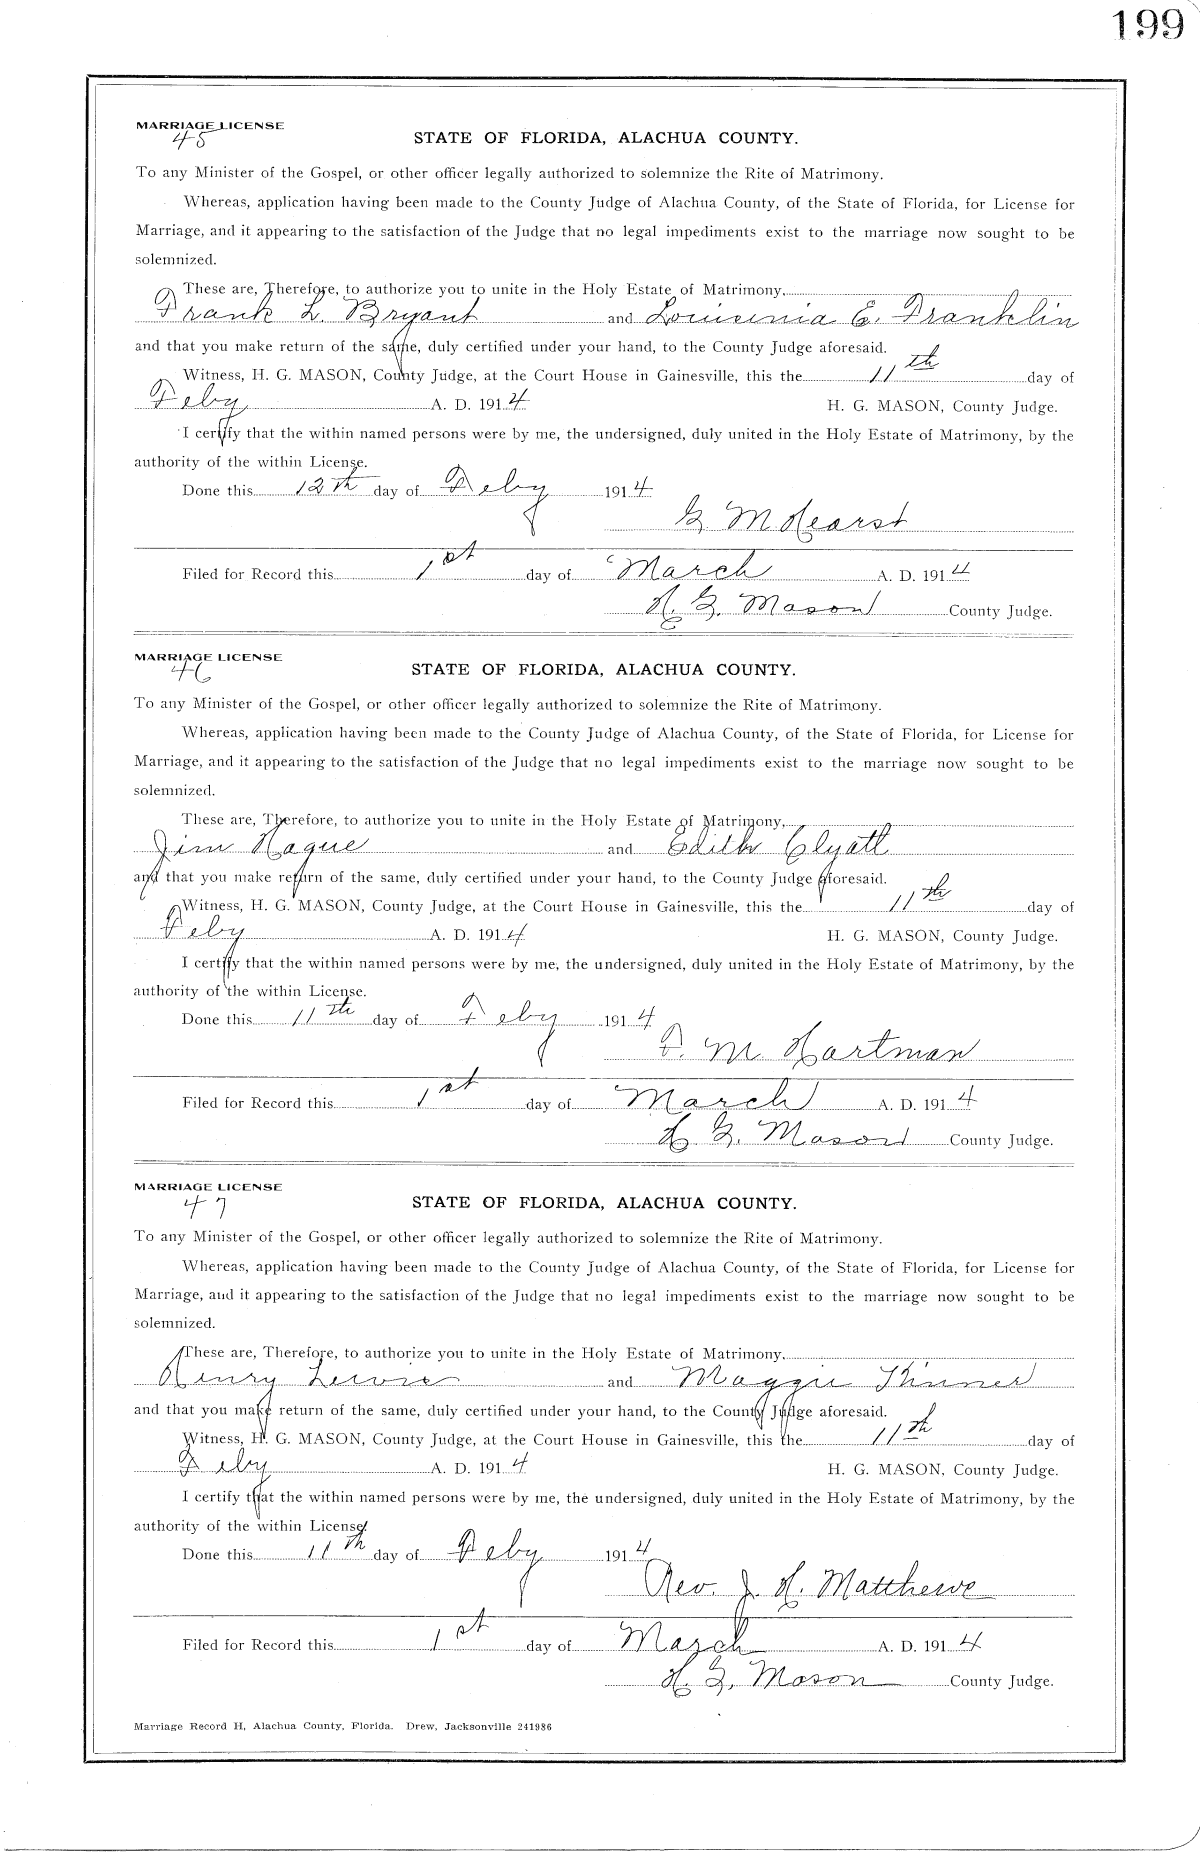 199
MARRIAGE LICENSE
45
STATE OF FLORIDA, ALACHUA COUNTY.
To any Minister of the Gospel, or other officer legally authorized to solemnize the Rite of Matrimony.
Whereas, application having been made to the County Judge of Alachua County, of the State of Florida, for License for
Marriage, and it appearing to the satisfaction of the Judge that no legal impediments exist to the marriage now sought to be
solemnized.
These are, Therefore, to authorize you to unite in the Holy Estate of Matrimony,
Frank L. Bryant and Louisinia E. Franklin
and that you make return of the same, duly certified under your hand, to the County Judge aforesaid.
Witness, H. G. MASON, County Judge, at the Court House in Gainesville, this the 11th day of
Feby A. D. 1914 H. G. MASON, County Judge.
I certify that the within named persons were by me, the undersigned, duly united in the Holy Estate of Matrimony, by the
authority of the within License.
Done this 12th day of Feby 1914
G. M Hearst
Filed for Record this 1st day of March A. D. 1914
H. G. Mason County Judge.
MARRIAGE LICENSE
46
STATE OF FLORIDA, ALACHUA COUNTY.
To any Minister of the Gospel, or other officer legally authorized to solemnize the Rite of Matrimony.
Whereas, application having been made to the County Judge of Alachua County, of the State of Florida, for License for
Marriage, and it appearing to the satisfaction of the Judge that no legal impediments exist to the marriage now sought to be
solemnized.
These are, Therefore, to authorize you to unite in the Holy Estate of Matrimony,
Jim Hague and Edith Clyatt
and that you make return of the same, duly certified under your hand, to the County Judge aforesaid.
Witness, H. G. MASON, County Judge, at the Court House in Gainesville, this the 11th day of
Feby A. D. 1914 H. G. MASON, County Judge.
I certify that the within named persons were by me, the undersigned, duly united in the Holy Estate of Matrimony, by the
authority of the within License.
Done this 11th day of Feby 1914
F. M. Hartman
Filed for Record this 1st day of March A. D. 1914
H. G. Mason County Judge.
MARRIAGE LICENSE
47
STATE OF FLORIDA, ALACHUA COUNTY.
To any Minister of the Gospel, or other officer legally authorized to solemnize the Rite of Matrimony.
Whereas, application having been made to the County Judge of Alachua County, of the State of Florida, for License for
Marriage, and it appearing to the satisfaction of the Judge that no legal impediments exist to the marriage now sought to be
solemnized.
These are, Therefore, to authorize you to unite in the Holy Estate of Matrimony,
Henry Lewis and Maggie
and that you make return of the same, duly certified under your hand, to the County Judge aforesaid.
Witness, H. G. MASON, County Judge, at the Court House in Gainesville, this the 11th day of
Feby A. D. 1914 H. G. MASON, County Judge.
I certify that the within named persons were by me, the undersigned, duly united in the Holy Estate of Matrimony, by the
authority of the within License.
Done this 11th day of Feby 1914
Rev. J. H. Matthews
Filed for Record this 1st day of March A. D. 1914
H. G. Mason County Judge.
Marriage Record H, Alachua County, Florida. Drew, Jacksonville 241986